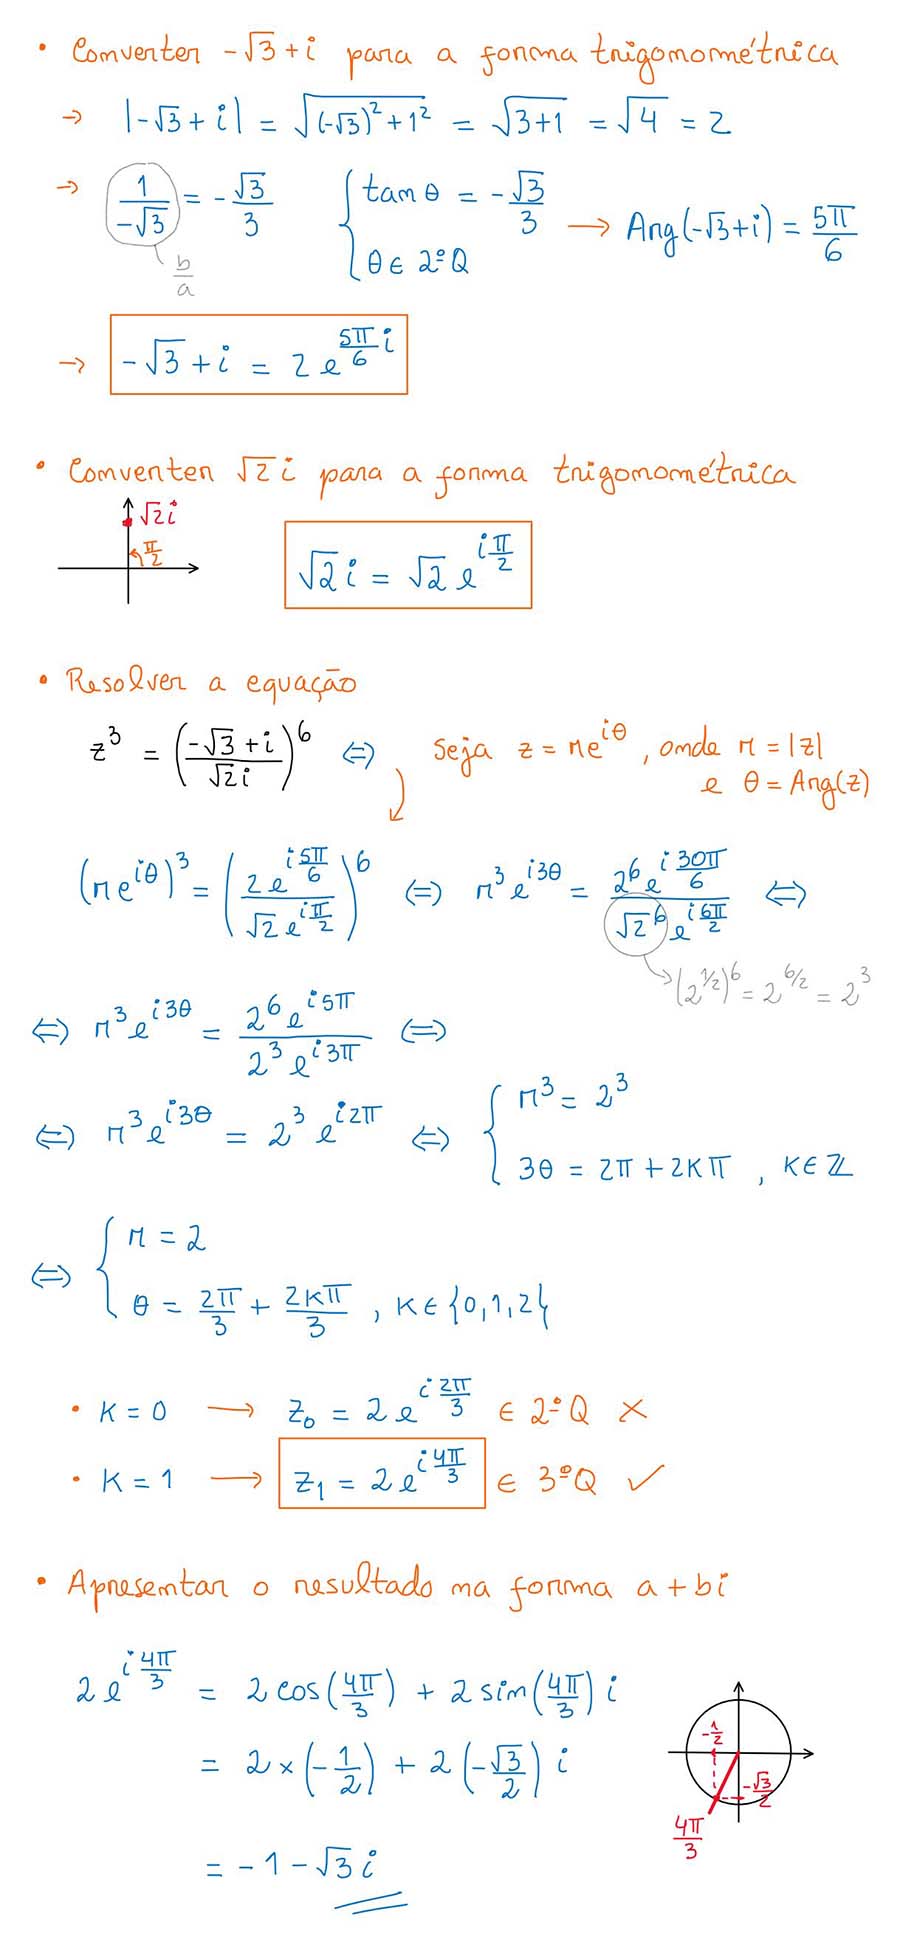 • Converter -√3 + i para a forma trigonométrica
→ |-√3 + i| = √((-√3)² + 1²) = √(3+1) = √4 = 2
→ 1/(-√3) = -√3/3 { tan θ = -√3/3 → Arg(-√3+i) = 5π/6
θ ∈ 2ºQ
b/a
→ -√3 + i = 2 e^(5π/6 i)
• Converter √2 i para a forma trigonométrica
√2 i
π/2
√2 i = √2 e^(i π/2)
• Resolver a equação
z³ = ((-√3 + i)/(√2 i))⁶ ⇔ Seja z = re^(iθ), onde r = |z|
e θ = Arg(z)
(re^(iθ))³ = ((2e^(i 5π/6))/(√2 e^(i π/2)))⁶ ⇔ r³ e^(i3θ) = (2⁶ e^(i 30π/6))/(√2⁶ e^(i 6π/2)) ⇔
(2^(1/2))⁶ = 2^(6/2) = 2³
⇔ r³ e^(i3θ) = (2⁶ e^(i5π))/(2³ e^(i3π)) ⇔
⇔ r³ e^(i3θ) = 2³ e^(i2π) ⇔ { r³ = 2³
3θ = 2π + 2kπ , k ∈ ℤ
⇔ { r = 2
θ = 2π/3 + 2kπ/3 , k ∈ {0,1,2}
• k = 0 → z₀ = 2 e^(i 2π/3) ∈ 2ºQ ×
• k = 1 → z₁ = 2 e^(i 4π/3) ∈ 3ºQ ✓
• Apresentar o resultado na forma a + bi
2 e^(i 4π/3) = 2 cos(4π/3) + 2 sin(4π/3) i
= 2 × (-1/2) + 2 (-√3/2) i
= -1 - √3 i
-1/2
-√3/2
4π/3